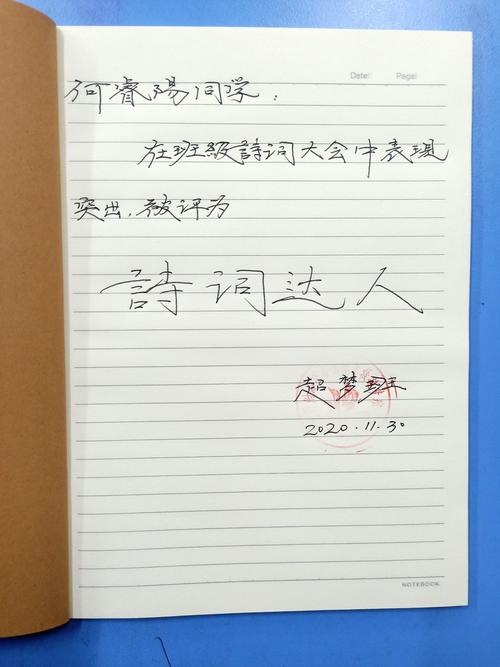 Date: Page:
何睿陽同学：
在班級詩词大会中表現
突出，被评为
詩词达人
超梦班
2020.11.30
NOTEBOOK